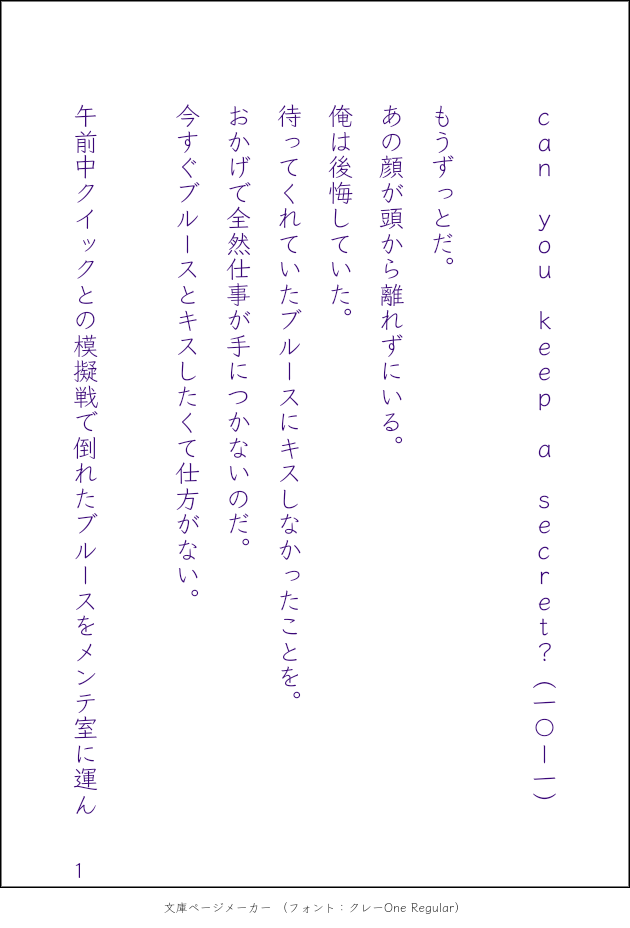 can you keep a secret?（一〇ー一）
もうずっとだ。
あの顔が頭から離れずにいる。
俺は後悔していた。
待ってくれていたブルースにキスしなかったことを。
おかげで全然仕事が手につかないのだ。
今すぐブルースとキスしたくて仕方がない。
午前中クイックとの模擬戦で倒れたブルースをメンテ室に運ん
1
文庫ページメーカー （フォント：クレーOne Regular）